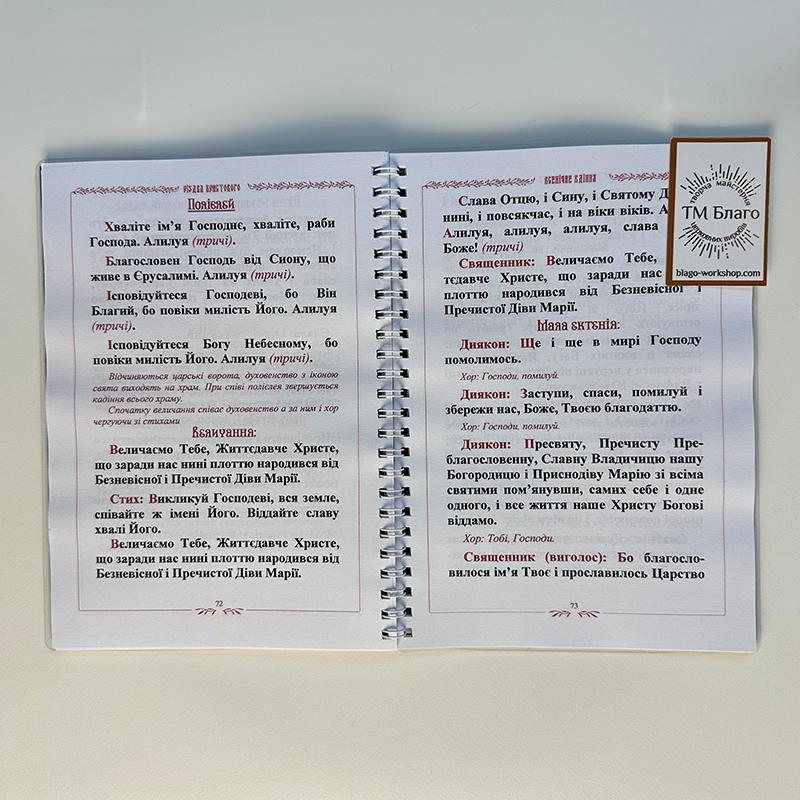 Різдва Христового
Полієлей
Хваліте ім’я Господнє, хваліте, раби
Господа. Алилуя (тричі).
Благословен Господь від Сиону, що
живе в Єрусалимі. Алилуя (тричі).
Ісповідуйтеся Господеві, бо Він
Благий, бо повіки милість Його. Алилуя
(тричі).
Ісповідуйтеся Богу Небесному, бо
повіки милість Його. Алилуя (тричі).
Відчиняються царські ворота, духовенство з іконою
свята виходять на храм. При співі полієлея звершується
кадіння всього храму.
Спочатку величання співає духовенство а за ним і хор
чергуючи зі стихами
Величання:
Величаємо Тебе, Життєдавче Христе,
що заради нас нині плоттю народився від
Безневісної і Пречистої Діви Марії.
Стих: Викликуй Господеві, вся земле,
співайте ж імені Його. Віддайте славу
хвалі Його.
Величаємо Тебе, Життєдавче Христе,
що заради нас нині плоттю народився від
Безневісної і Пречистої Діви Марії.
72
Всенічне бдіння
Слава Отцю, і Сину, і Святому
нині, і повсякчас, і на віки віків.
Алилуя, алилуя, алилуя, слава
Боже! (тричі)
Священник: Величаємо Тебе,
тєдавче Христе, що заради нас
плоттю народився від Безневісної і
Пречистої Діви Марії.
Мала єктенія:
Диякон: Ще і ще в мирі Господу
помолимось.
Хор: Господи, помилуй.
Диякон: Заступи, спаси, помилуй і
збережи нас, Боже, Твоєю благодаттю.
Хор: Господи, помилуй.
Диякон: Пресвяту, Пречисту Пре-
благословенну, Славну Владичицю нашу
Богородицю і Приснодіву Марію зі всіма
святими пом’янувши, самих себе і одне
одного, і все життя наше Христу Богові
віддамо.
Хор: Тобі, Господи.
Священник (виголос): Бо благосло-
вилося ім’я Твоє і прославилось Царство
73
творча майстерня
ТМ Благо
церковних виробів
blago-workshop.com